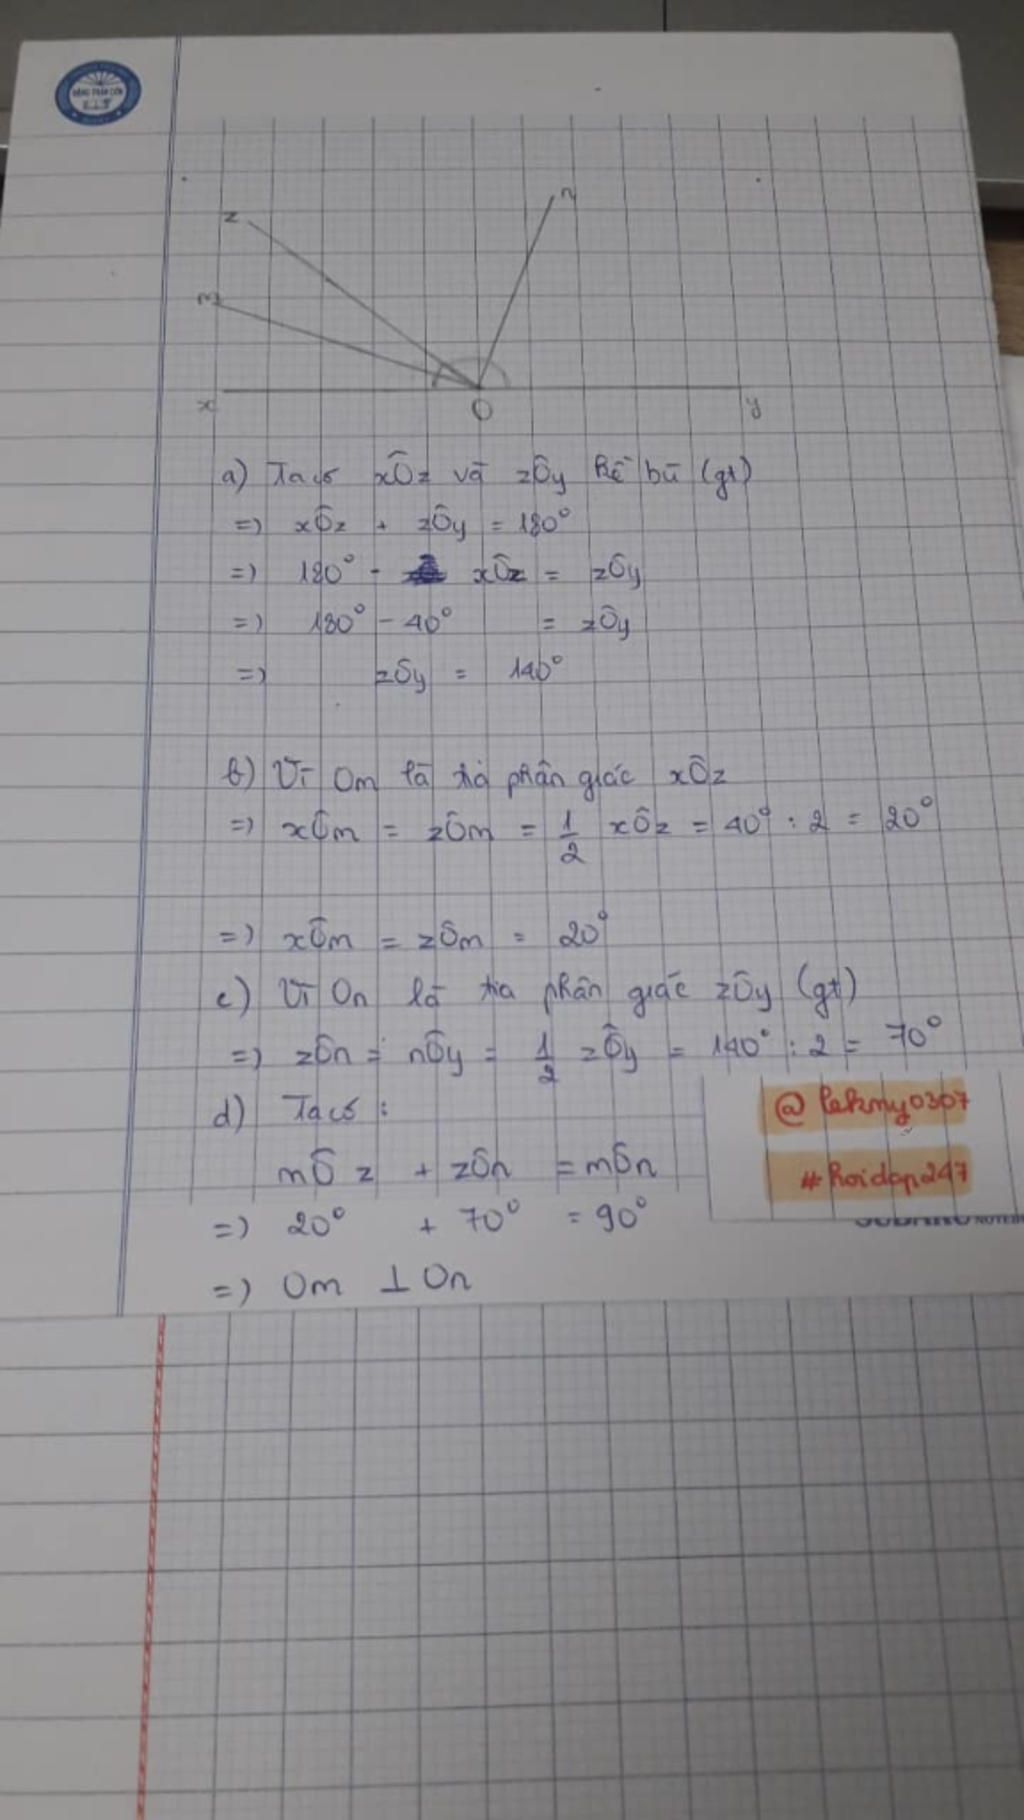 z
n
m
x
O
y
a) Ta có xÔz và zÔy kề bù (gt)
=) xÔz + zÔy = 180°
=) 180° - xÔz = zÔy
=) 180° - 40° = zÔy
=) zÔy = 140°
b) Vì Om là tia phân giác xÔz
=) xÔm = zÔm = 1/2 xÔz = 40° : 2 = 20°
=) xÔm = zÔm = 20°
c) Vì On là tia phân giác zÔy (gt)
=) zÔn = nÔy = 1/2 zÔy = 140° : 2 = 70°
d) Ta có :
mÔz + zÔn = mÔn
=) 20° + 70° = 90°
=) Om ⊥ On
@lekmy0307
#hoidap247